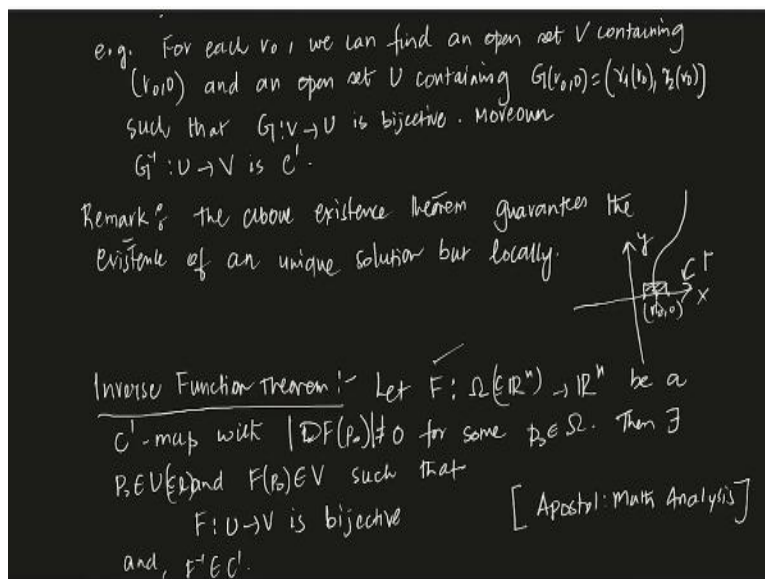 e.g. For each r₀, we can find an open set V containing
(r₀,0) and an open set U containing G(r₀,0)=(γ₁(r₀), γ₂(r₀))
such that G:V→U is bijective. Moreover
G⁻¹:U→V is C¹.
Remark: the above existence theorem guarantees the
existence of an unique solution but locally.
y
Γ
x
(r₀,0)
Inverse Function Theorem:- Let F: Ω(⊆ℝⁿ)→ℝⁿ be a
C¹-map with |DF(p₀)|≠0 for some p₀∈Ω. Then ∃
p₀∈U(⊆Ω) and F(p₀)∈V such that
F:U→V is bijective
[Apostol: Math Analysis]
and, F⁻¹∈C¹.